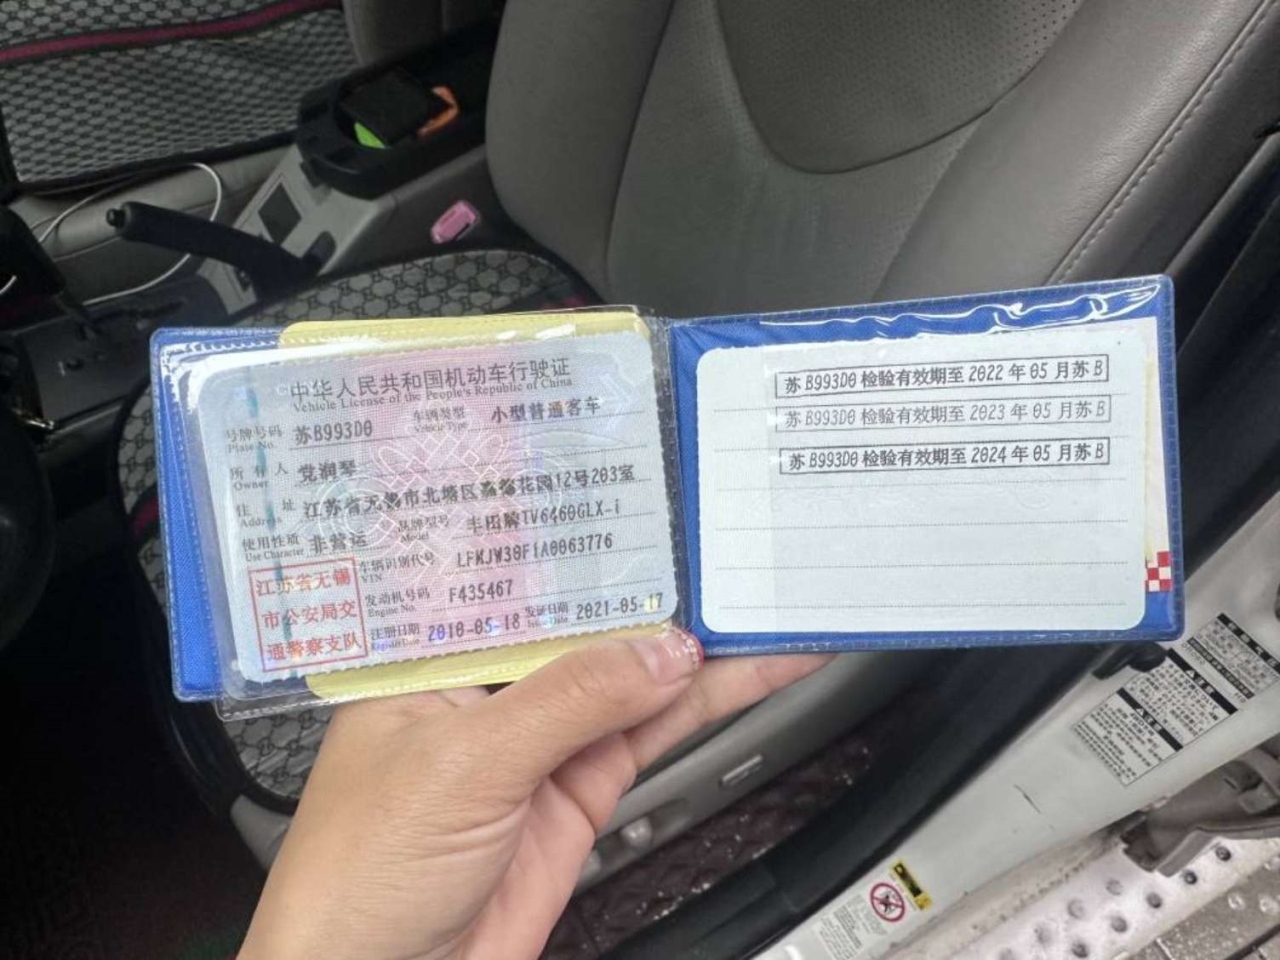 中华人民共和国机动车行驶证
Vehicle License of the People's Republic of China
号牌号码 苏B993D0 车辆类型 小型普通客车
Plate No. Vehicle Type
所有人 党润琴
Owner
住址 江苏省无锡市北塘区嘉德花园12号203室
Address
使用性质 非营运 品牌型号 丰田牌TV6460GLX-i
Use Character Model
车辆识别代号 LFMJW30F1A0063776
VIN
发动机号码 F435467
Engine No.
注册日期 2010-05-18 发证日期 2021-05-17
Register Date Issue Date
江苏省无锡
市公安局交
通警察支队
苏B993D0检验有效期至2022年05月苏B
苏B993D0检验有效期至2023年05月苏B
苏B993D0检验有效期至2024年05月苏B